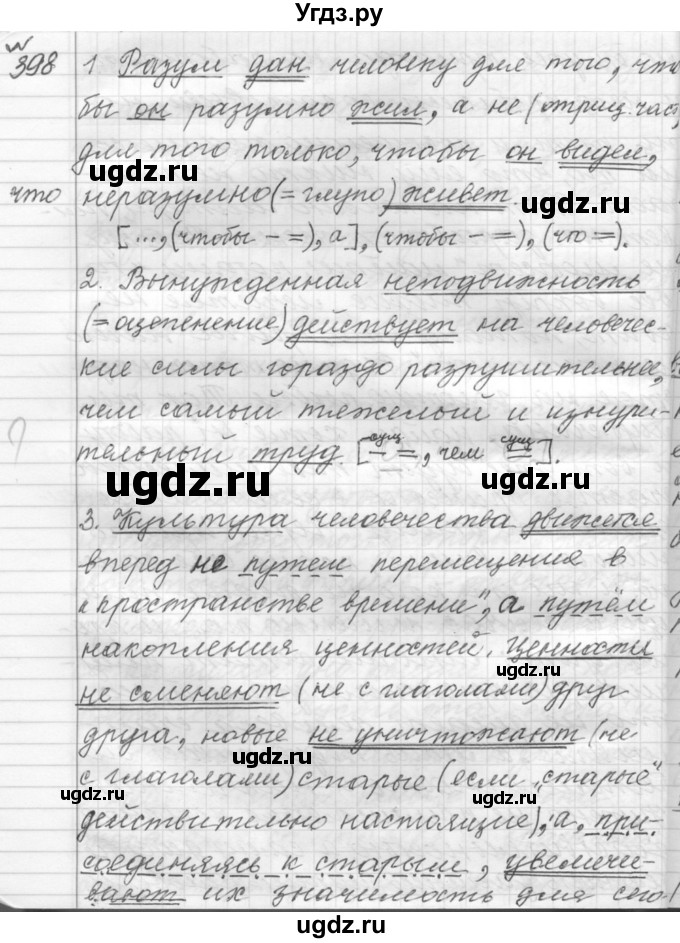 Угдз.ру
№ 398 1 Разум дан человеку для того, что
бы он разумно жил, а не (отриц. част,
для того только, чтобы он видел,
ugdz.ru
что неразумно (= глупо) живет.
ugdz.ru
[..., (чтобы - =), а], (чтобы - =), (что =).
2. Вынужденная неподвижность
(= оцепенение) действует на человечес-
кие силы гораздо разрушительнее,
чем самый тяжелый и изнури-
тельный труд. [сущ - =, чем сущ =].
ugdz.ru ugdz.ru
3. Культура человечества движется
вперед не путем перемещения в
"пространстве времени", а путём
накопления ценностей. Ценности
ugdz.ru
не сменяют (не с глаголами) друг
друга, новые не уничтожают (не
ugdz.ru
с глаголами) старые (если "старые"
ugdz.ru ugdz.ru
действительно настоящие), а, при-
соединяясь к старым, увеличи-
вают их значимость для сего
ugdz.ru